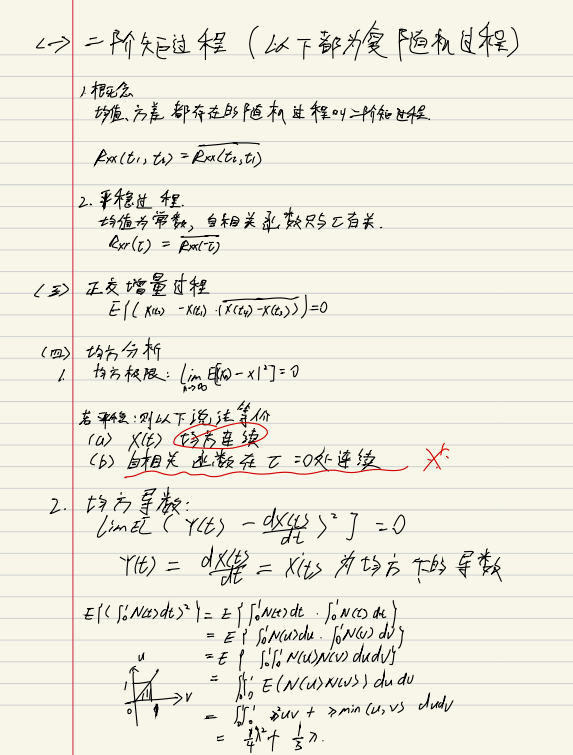 (一) 二阶矩过程 (以下都为复随机过程)
1. 概念
均值、方差都存在的随机过程叫二阶矩过程
Rxx(t₁, t₂) = \overline{Rxx(t₂, t₁)}
2. 平稳过程.
均值为常数, 自相关函数只与τ有关.
Rxx(τ) = \overline{Rxx(-τ)}
(三) 正交增量过程
E{(X(t₂) - X(t₁)) · \overline{(X(t₄) - X(t₃))}} = 0
(四) 均方分析
1. 均方极限: lim n→∞ E[|X(n) - X|²] = 0
若平稳: 则以下说法等价
(a) X(t) 均方连续
(b) 自相关函数在 τ=0处连续
2. 均方导数:
lim E[(Y(t) - dX(t)/dt)²] = 0
Y(t) = dX(t)/dt = X'(t) 为均方下的导数
E{(∫₀¹N(t)dt)²} = E{∫₀¹N(t)dt · ∫₀¹N(t)dt}
= E{∫₀¹N(u)du · ∫₀¹N(v)dv}
= E{∫₀¹∫₀¹N(u)N(v)dudv}
= ∫₀¹∫₀¹E(N(u)N(v))dudv
= ∫₀¹∫₀¹λ²uv + λmin(u,v) dudv
= ¼λ² + ⅓λ.
u
1
0
1
v